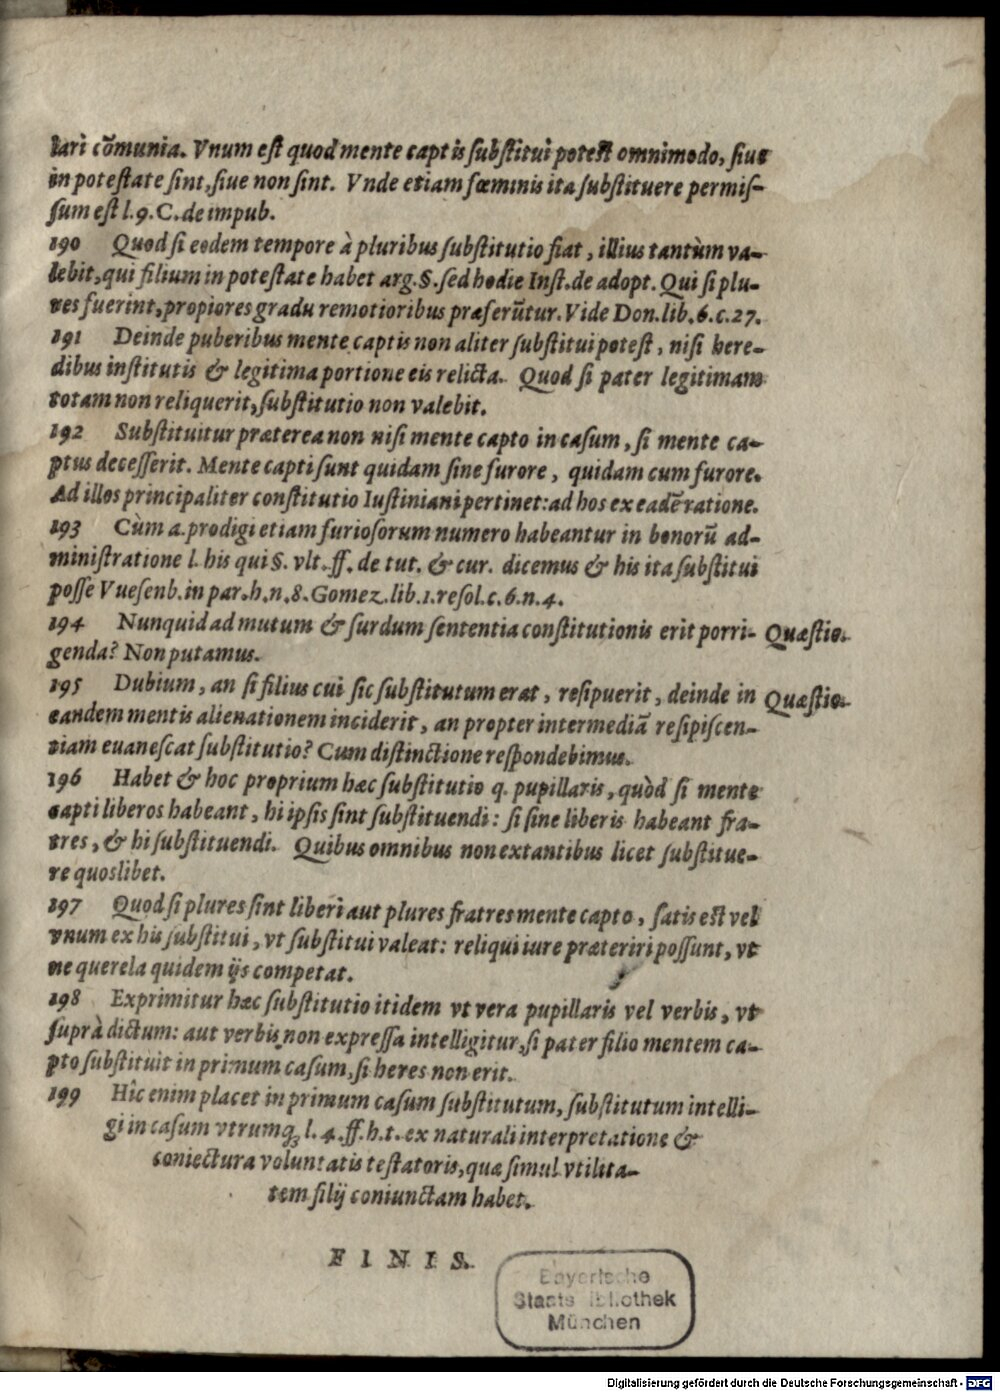 lari cõmunia. Vnum est quod mente captis substitui potest omnimodo, siue
in potestate sint, siue non sint. Vnde etiam fœminis ita substituere permis-
sum est l. 9. C. de impub.
190 Quod si eodem tempore à pluribus substitutio fiat, illius tantùm va-
lebit, qui filium in potestate habet arg. §. sed hodie Inst. de adopt. Qui si plu-
res fuerint, propiores gradu remotioribus præferũtur. Vide Don. lib. 6. c. 27.
191 Deinde puberibus mente captis non aliter substitui potest, nisi here-
dibus institutis & legitima portione eis relicta. Quod si pater legitimam
totam non reliquerit, substitutio non valebit.
192 Substituitur præterea non nisi mente capto in casum, si mente ca-
ptus decesserit. Mente capti sunt quidam sine furore, quidam cum furore.
Ad illos principaliter constitutio Iustiniani pertinet: ad hos ex eadẽ ratione.
193 Cùm a. prodigi etiam furiosorum numero habeantur in bonorũ ad-
ministratione l. his qui §. vlt. ff. de tut. & cur. dicemus & his ita substitui
posse Vuesenb. in par. h. n. 8. Gomez. lib. 1. resol. c. 6. n. 4.
194 Nunquid ad mutum & surdum sententia constitutionis erit porri- Quæstio.
genda? Non putamus.
195 Dubium, an si filius cui sic substitutum erat, resipuerit, deinde in Quæstio.
eandem mentis alienationem inciderit, an propter intermediã resipiscen-
tiam euanescat substitutio? Cum distinctione respondebimus.
196 Habet & hoc proprium hæc substitutio q. pupillaris, quòd si mente
capti liberos habeant, hi ipsis sint substituendi: si sine liberis habeant fra-
tres, & hi substituendi. Quibus omnibus non extantibus licet substitue-
re quoslibet.
197 Quod si plures sint liberi aut plures fratres mente capto, satis est vel
vnum ex his substitui, vt substitui valeat: reliqui iure præteriri possunt, vt
ne querela quidem ijs competat.
198 Exprimitur hæc substitutio itidem vt vera pupillaris vel verbis, vt
suprà dictum: aut verbis non expressa intelligitur, si pater filio mentem ca-
pto substituit in primum casum, si heres non erit.
199 Hîc enim placet in primum casum substitutum, substitutum intelli-
gi in casum vtrumq; l. 4. ff. h. t. ex naturali interpretatione &
coniectura voluntatis testatoris, quæ simul vtilita-
tem filij coniunctam habet.
FINIS.
Bayerische
Staatsbibliothek
München
Digitalisierung gefördert durch die Deutsche Forschungsgemeinschaft - DFG